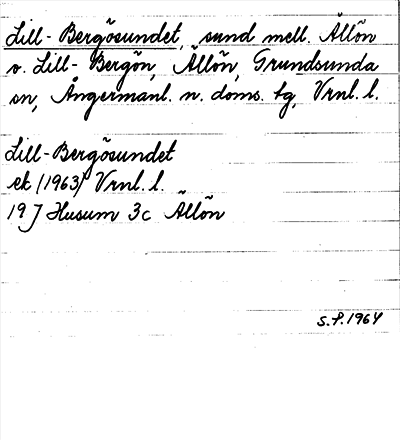 Lill-Bergösundet, sund mell. Ällön
o. Lill-Bergön, Ällön, Grundsunda
sn, Ångermanl. n. doms. tg, Vrnl. l.
Lill-Bergösundet
ek (1963) Vrnl. l.
19 J Husum 3c Ällön
S.F. 1964